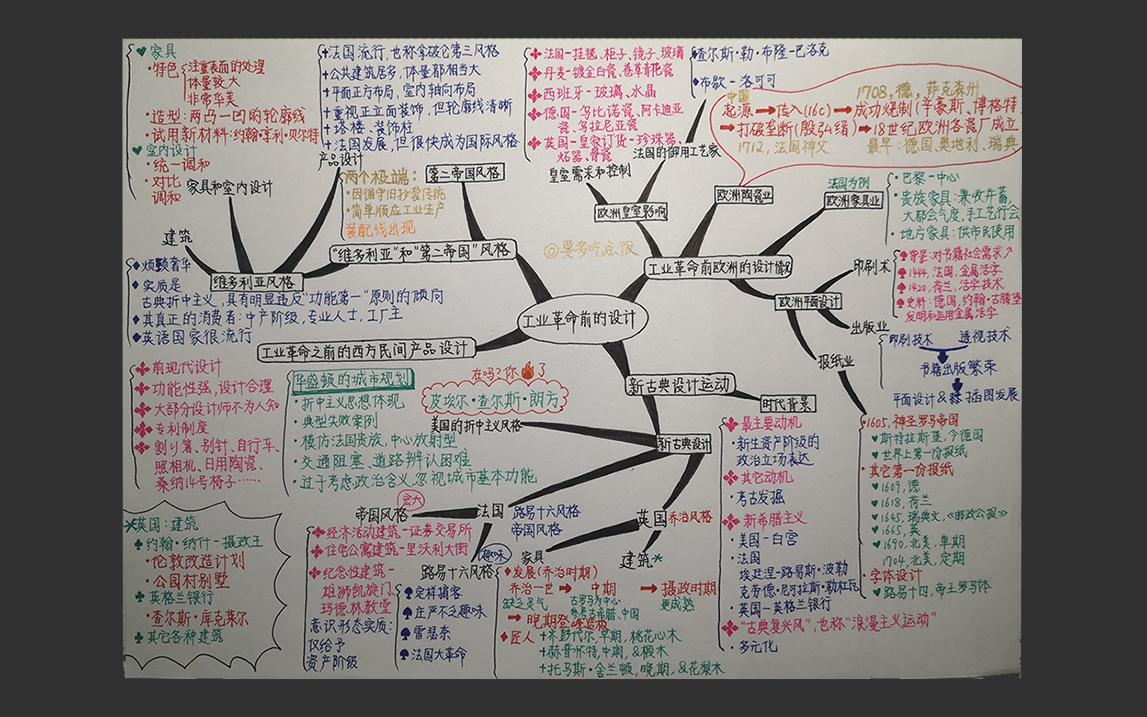 工业革命前的设计
♥家具
·特色
注重表面的处理
体量较大
非常华美
·造型:两凸一凹的轮廓线
·试用新材料:约翰·亨利·贝尔特
♥室内设计
·统一调和
·对比
调和
家具和室内设计
建筑
维多利亚风格
♦烦颢奢华
♦实质是
古典折中主义,具有明显违反“功能第一”原则的倾向
♦其真正的消费者:中产阶级,专业人士,工厂主
♦英语国家很流行
产品设计
两个极端:
·因循守旧抄袭传统
·简单顺应工业生产
装配线出现
“维多利亚”和“第二帝国”风格
第二帝国风格
+法国流行,也称拿破仑第三风格
+公共建筑居多,体量都相当大
+平面正方布局,室内轴向布局
+重视正立面装饰,但轮廓线清晰
+塔楼、装饰柱
+法国发展,但很快成为国际风格
法国-挂毯、柜子、镜子、玻璃
丹麦-镀金白瓷、卷草青花瓷
西班牙-玻璃、水晶
德国-乌比诺瓷、阿卡迪亚
瓷、乌拉尼亚瓷
英国-皇家订货-珍珠器、
炻器、骨瓷
皇室需求和控制
查尔斯·勒·布隆-巴洛克
布歇-洛可可
法国的御用工艺家
欧洲皇室影响
◎要多吃点饭
工业革命前欧洲的设计情况
中国
1708,德,萨克森州
起源➡传入(16c)➡成功烧制(辛豪斯、博格特)
➡打破垄断(殷弘绪)➡18世纪欧洲各瓷厂成立
1712,法国神父
最早:德国,奥地利,瑞典
欧洲陶瓷业
法国为例
欧洲家具业
·巴黎-中心
·贵族家具:兼收并蓄,
大都会气度,手工艺行会
·地方家具:供市民使用
欧洲平面设计
印刷术
背景:对书籍社会需求↗
1444,法国,金属活字
1420,荷兰,活字技术
史料:德国,约翰·古腾堡
发明和运用金属活字
出版业
印刷技术 透视技术
书籍出版繁荣
平面设计& 插图发展
报纸业
1605,神圣罗马帝国
♥斯特拉斯亚,今德国
♥世界上第一份报纸
·其它第一份报纸
♥1609,德
♥1618,荷兰
♥1645,瑞典文,《邮政公报》
♥1665,英
♥1690,北美,早期
1704,北美,定期
·字体设计
♥路易十四,帝王罗马体
工业革命之前的西方民间产品设计
前现代设计
功能性强,设计合理
大部分设计师不为人知
专利制度
割刂署、别针、自行车、
照相机、日用陶瓷、
桑纳14号椅子……
华盛顿的城市规划
·折中主义思想体现
·典型失败案例
·模仿法国贵族,中心放射型
·交通阻塞,道路辨认困难
·过于考虑政治含义,忽视城市基本功能
在吗?你🔥了
皮埃尔·查尔斯·朗方
美国的折中主义风格
新古典设计运动
时代背景
最主要动机
·新生资产阶级的
政治立场表达
其它动机
·考古发掘
新希腊主义
·美国-白宫
·法国
埃廷涅-路易斯·波勒
克劳德·尼可拉斯·勒杜瓦
·英国-英格兰银行
“古典复兴风”,也称“浪漫主义运动”
·多元化
新古典设计
宏大
帝国风格
法国
路易十六风格
帝国风格
趣味
路易十六风格
经济活动建筑-证券交易所
住宅公寓建筑-里沃利大街
纪念性建筑-
雄狮凯旋门,
玛德林教堂
意识形态实质:
仅给予
资产阶级
♠定样摘客
♠庄严不乏趣味
♠雷瑟奈
♠法国大革命
英国
乔治风格
家具
建筑*
♦发展(乔治时期)
乔治一世➡中期➡摄政时期
缺乏灵气
古罗马为中心
参考古希腊、中国
更成熟
➡晚期登峰造极
♦匠人
+齐彭代尔,早期,桃花心木
+赫普怀特,中期,&椴木
+托马斯·舍兰顿,晚期,&花梨木
*英国:建筑
♣约翰·纳什-摄政王
·伦敦改造计划
·公园村别墅
♣英格兰银行
·查尔斯·库克莱尔
♣其它各种建筑